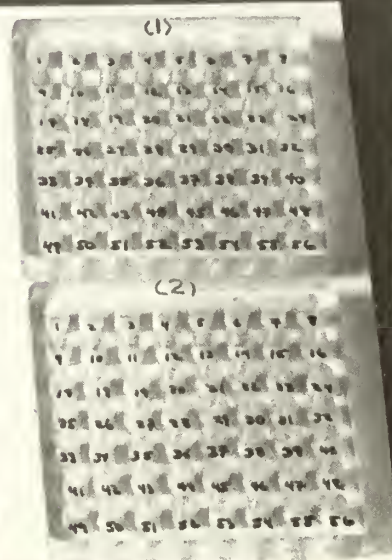 (1)
1 2 3 4 5 6 7 8
9 10 11 12 13 14 15 16
17 18 19 20 21 22 23 24
25 26 27 28 29 30 31 32
33 34 35 36 37 38 39 40
41 42 43 44 45 46 47 48
49 50 51 52 53 54 55 56
(2)
1 2 3 4 5 6 7 8
9 10 11 12 13 14 15 16
17 18 19 20 21 22 23 24
25 26 27 28 29 30 31 32
33 34 35 36 37 38 39 40
41 42 43 44 45 46 47 48
49 50 51 52 53 54 55 56